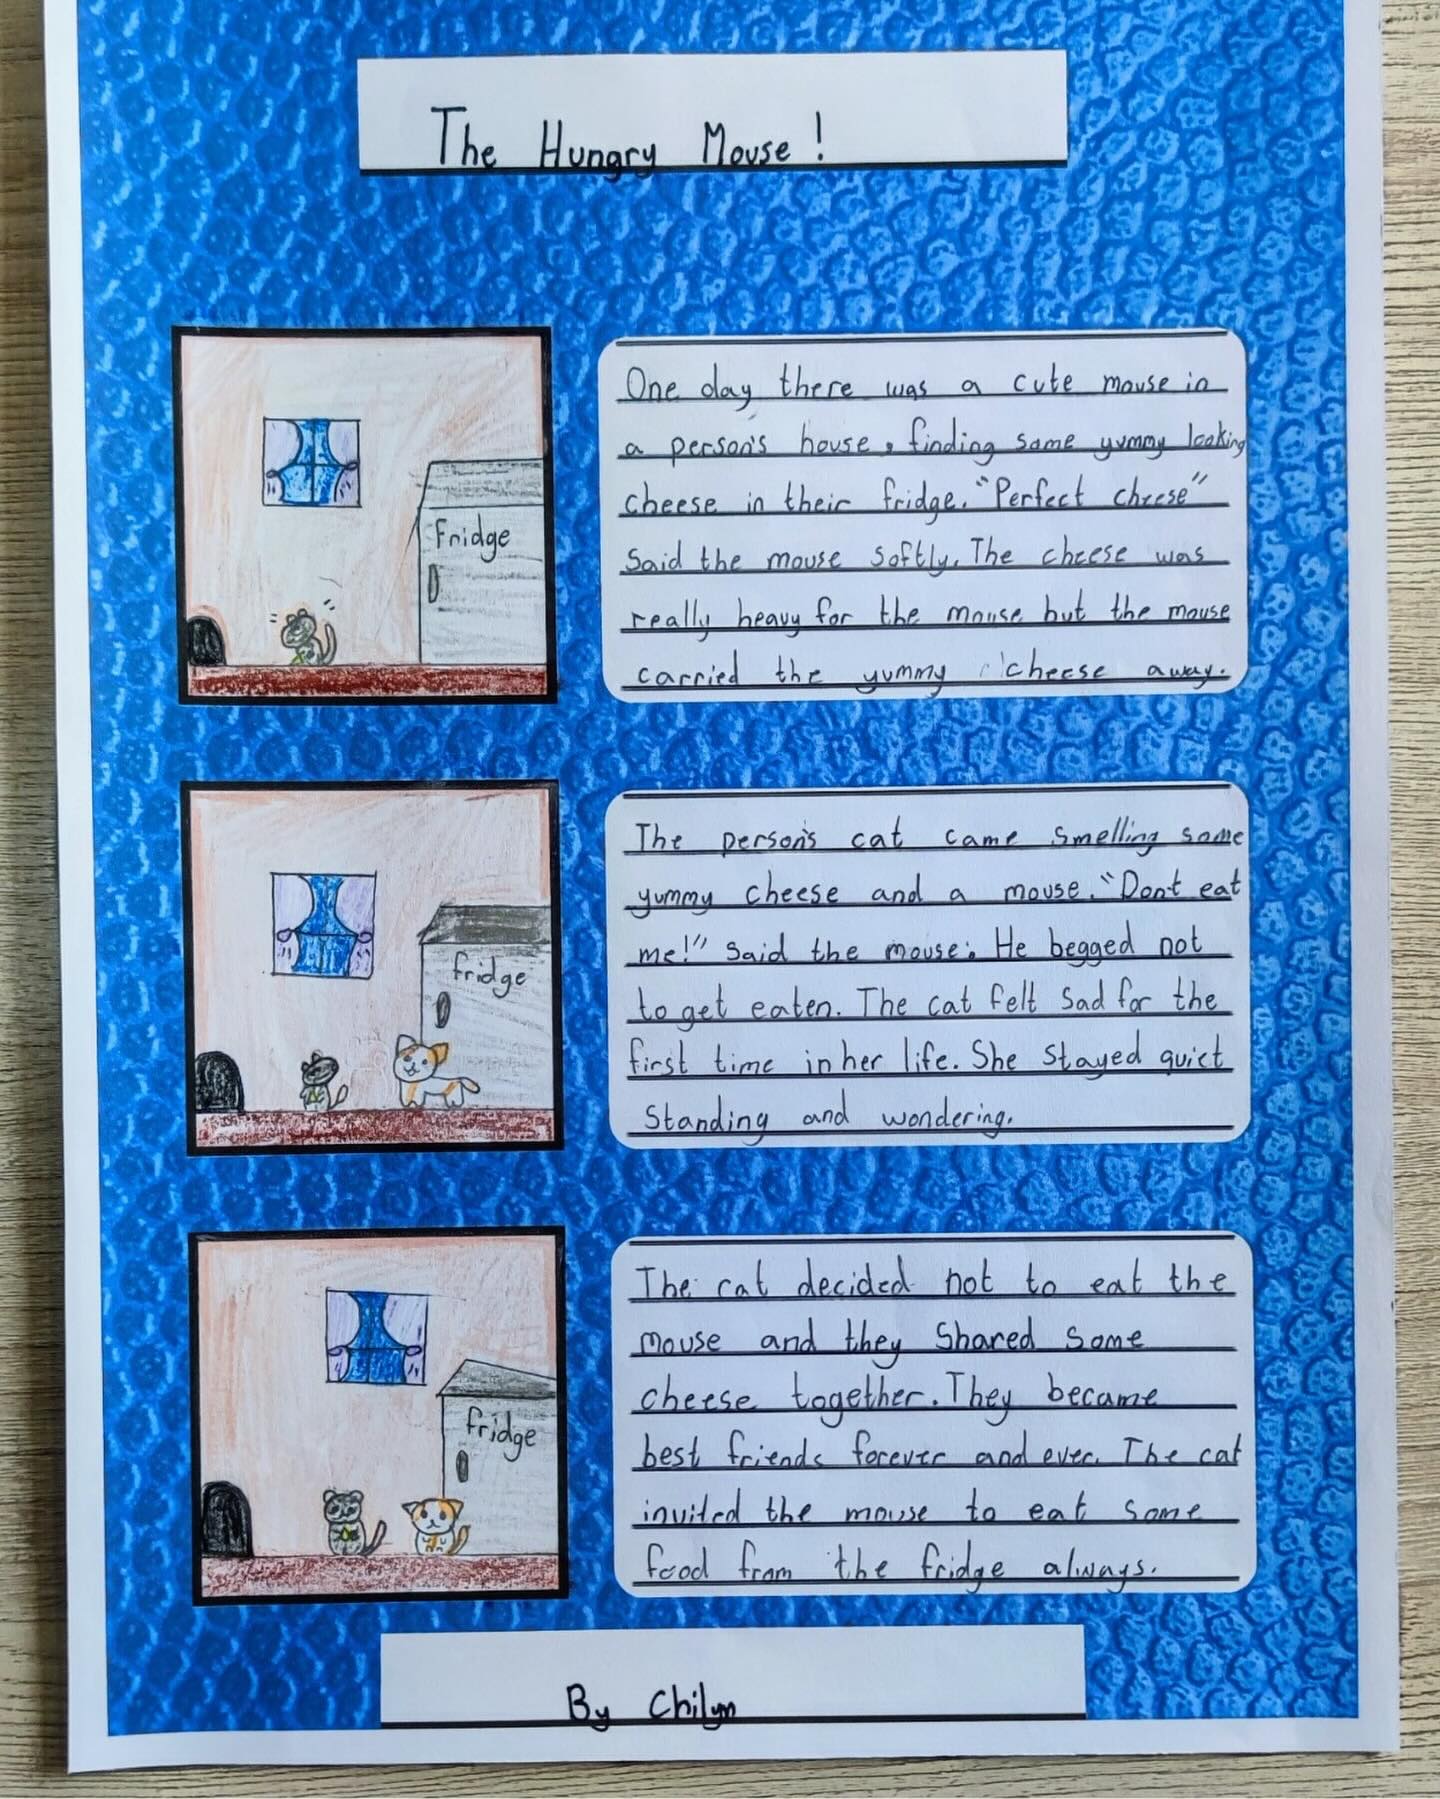 The Hungry Mouse!
Fridge
One day there was a cute mouse in
a person's house, finding some yummy looking
cheese in their fridge. "Perfect cheese"
Said the mouse softly. The cheese was
really heavy for the mouse but the mouse
carried the yummy cheese away.
fridge
The person's cat came smelling some
yummy cheese and a mouse. "Dont eat
me!" Said the mouse. He begged not
to get eaten. The cat felt Sad for the
first time in her life. She Stayed quiet
Standing and wondering.
fridge
The cat decided not to eat the
mouse and they Shared Some
cheese together. They became
best friends forever and ever. The cat
invited the mouse to eat some
food from the fridge always.
By Chilyn